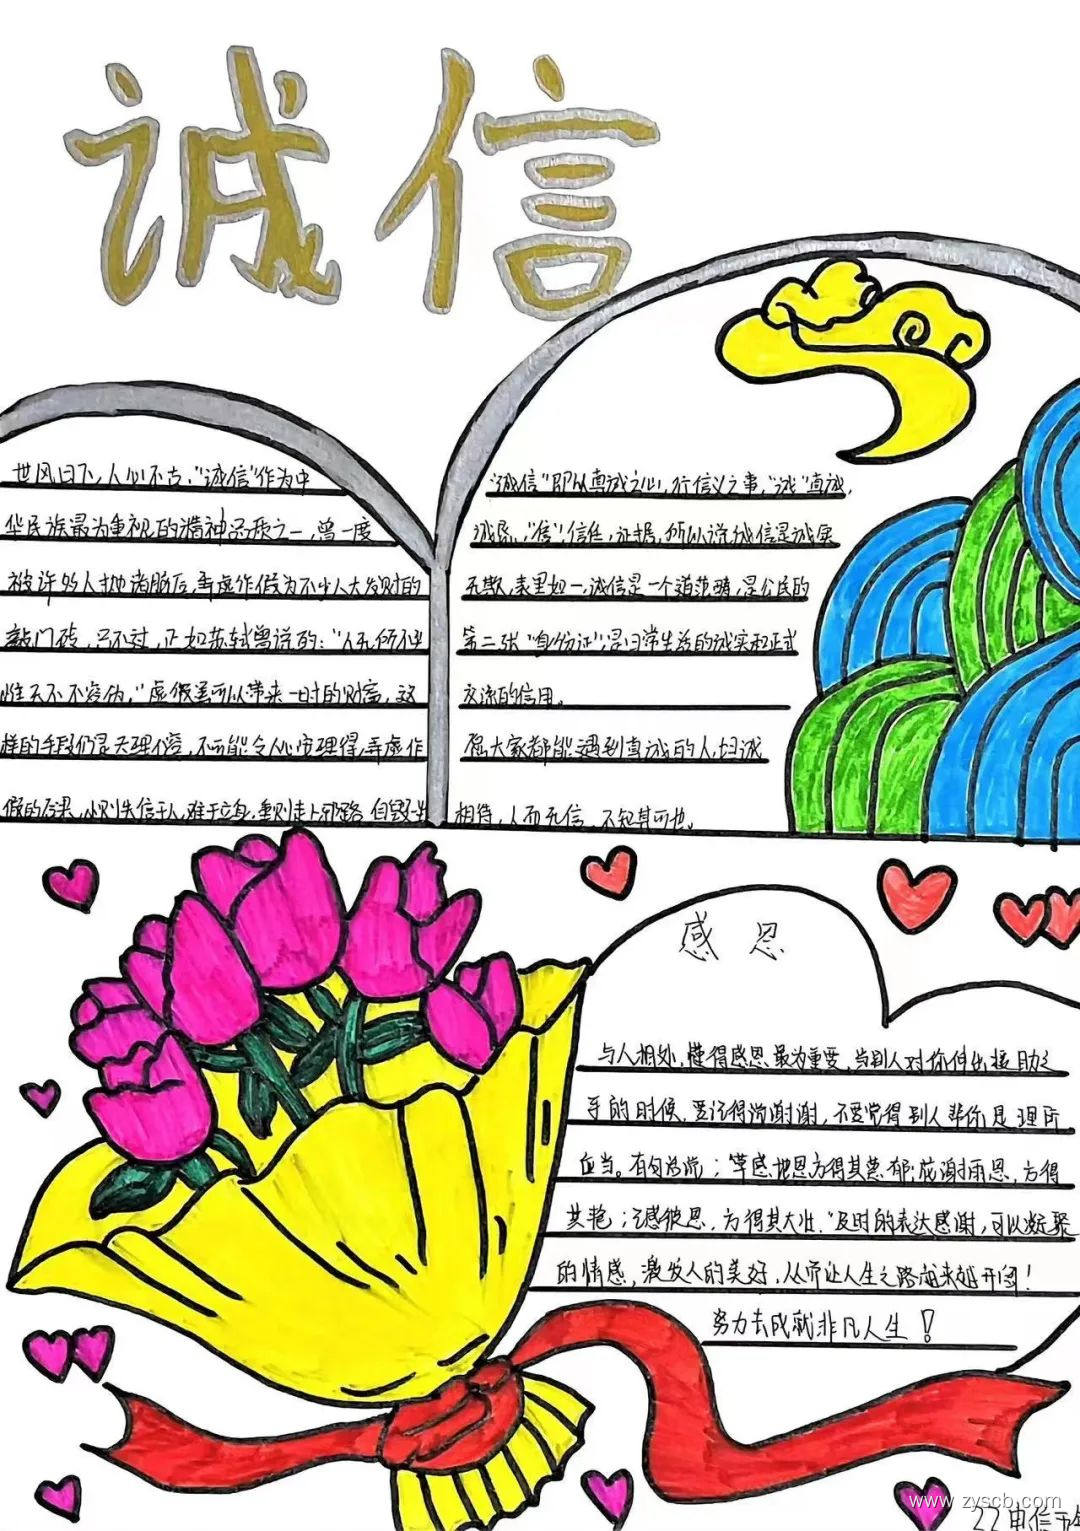 诚信
世风日下，人心不古，"诚信"作为中
华民族最为重视的精神品质之一，曾一度
被许多人抛诸脑后，弄虚作假为不少人大发财的
敲门砖，只不过，正如苏轼曾说的："人无所不至
惟天不容伪，"虚假虽可以带来一时的财富，这
样的手段仍是天理不容，不可能令人心安理得，弄虚作
假的后果，小则失信于人，难于立身，重则走上邪路，自毁
"诚信"即以真诚之心，行信义之事，"诚"真诚，
诚实，"信"信任，证据，所以说诚信是诚实
无欺，表里如一，诚信是一个道范畴，是公民的
第二张"身份证"，是日常生活的诚实和正式
交流的信用。
愿大家都能遇到真诚的人，坦诚
相待，人而无信，不知其可也。
感恩
与人相处，懂得感恩最为重要，当别人对你伸出援助之
手的时候，要记得说谢谢，不要觉得别人帮你是理所
应当。有句话说；"草感地恩方得其葱郁；花谢雨恩，方得
其艳；己感彼恩，方得其大壮."及时的表达感谢，可以凝聚
的情感，激发人的美好，从而让人生之路越来越开阔！
努力去成就非凡人生！
www.zyscb.com
22电信五年